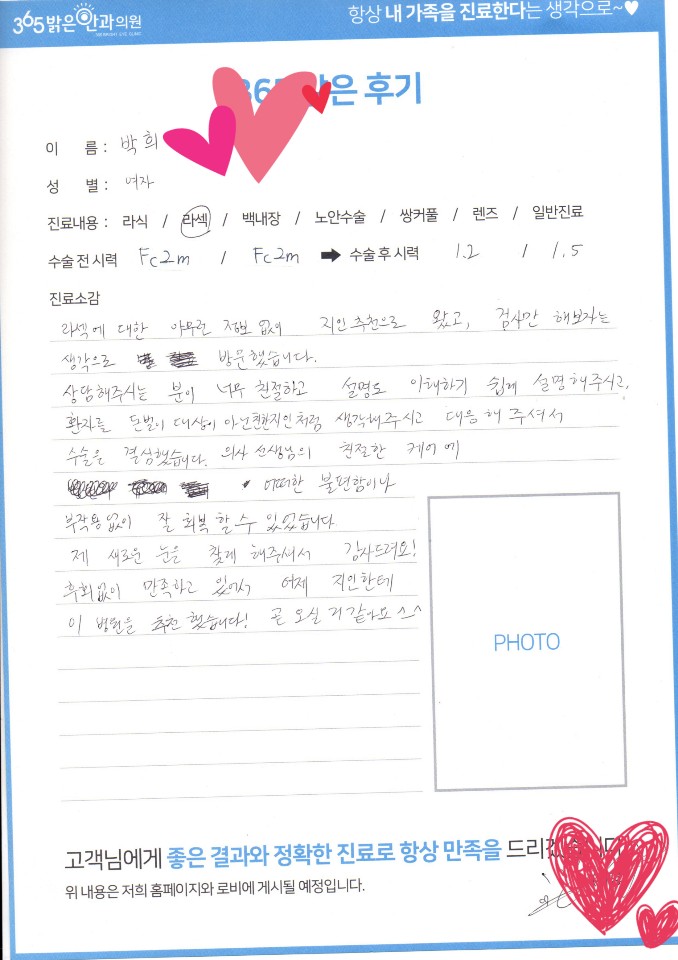 365밝은안과의원
항상 내 가족을 진료한다는 생각으로~♥
은 후기
이 름 : 박희
성 별 : 여자
진료내용 : 라식 / 라섹 / 백내장 / 노안수술 / 쌍커풀 / 렌즈 / 일반진료
수술 전 시력 Fc2m / Fc2m ➡ 수술 후 시력 1.2 / 1.5
진료소감
라섹에 대한 아무런 정보 없이 지인추천으로 왔고, 검사만 해보자는
생각으로 방문했습니다.
상담해주시는 분이 너무 친절하고 설명도 이해하기 쉽게 설명해주시고,
환자를 돈벌이 대상이 아닌 친한지인처럼 생각해주시고 대응해 주셔서
수술은 결심했습니다. 의사 선생님의 친절한 케어에
어떠한 불편함이나
부작용없이 잘 회복 할 수 있었습니다.
제 새로운 눈을 찾게 해주셔서 감사드려요!
후회없이 만족하고 있어서 어제 지인한테
이 병원을 추천 했습니다! 곧 오실 거 같아요 ^^
PHOTO
고객님에게 좋은 결과와 정확한 진료로 항상 만족을
위 내용은 저희 홈페이지와 로비에 게시될 예정입니다.